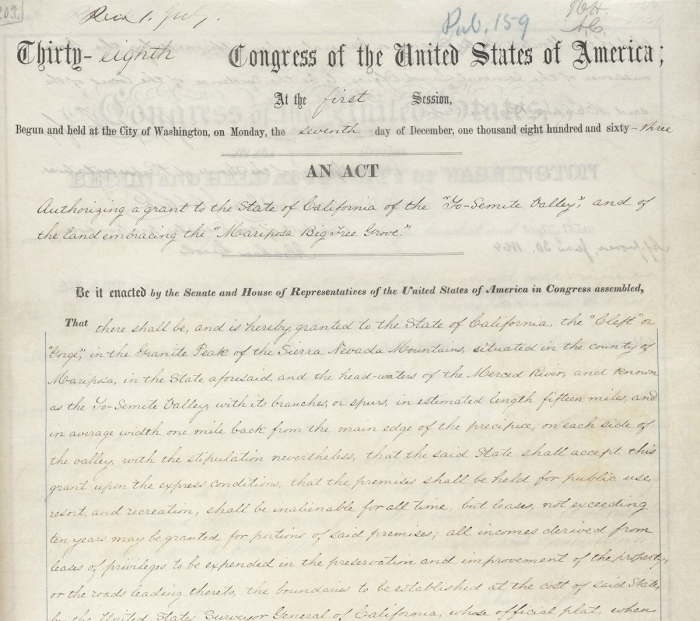 203
Pub. 159
Thirty-eighth Congress of the United States of America;
At the first Session,
Begun and held at the City of Washington, on Monday, the seventh day of December, one thousand eight hundred and sixty-three
AN ACT
Authorizing a grant to the State of California of the "Yo-Semite Valley," and of
the land embracing the "Mariposa Big Tree Grove."
Be it enacted by the Senate and House of Representatives of the United States of America in Congress assembled,
That there shall be, and is hereby, granted to the State of California, the "Cleft" or
"Gorge", in the Granite Peak of the Sierra Nevada Mountains, situated in the county of
Mariposa, in the State aforesaid, and the head-waters of the Merced River, and known
as the Yo-Semite Valley, with its branches, or spurs, in estimated length fifteen miles, and
in average width one mile back from the main edge of the precipice, on each side of
the valley, with the stipulation nevertheless, that the said State shall accept this
grant upon the express conditions, that the premises shall be held for public use,
resort, and recreation, shall be inalienable for all time, but leases, not exceeding
ten years may be granted for portions of said premises; all incomes derived from
leases of privileges to be expended in the preservation and improvement of the property,
or the roads leading thereto, the boundaries to be established at the cost of said State,
by the United States Surveyor General of California, whose official plat, when